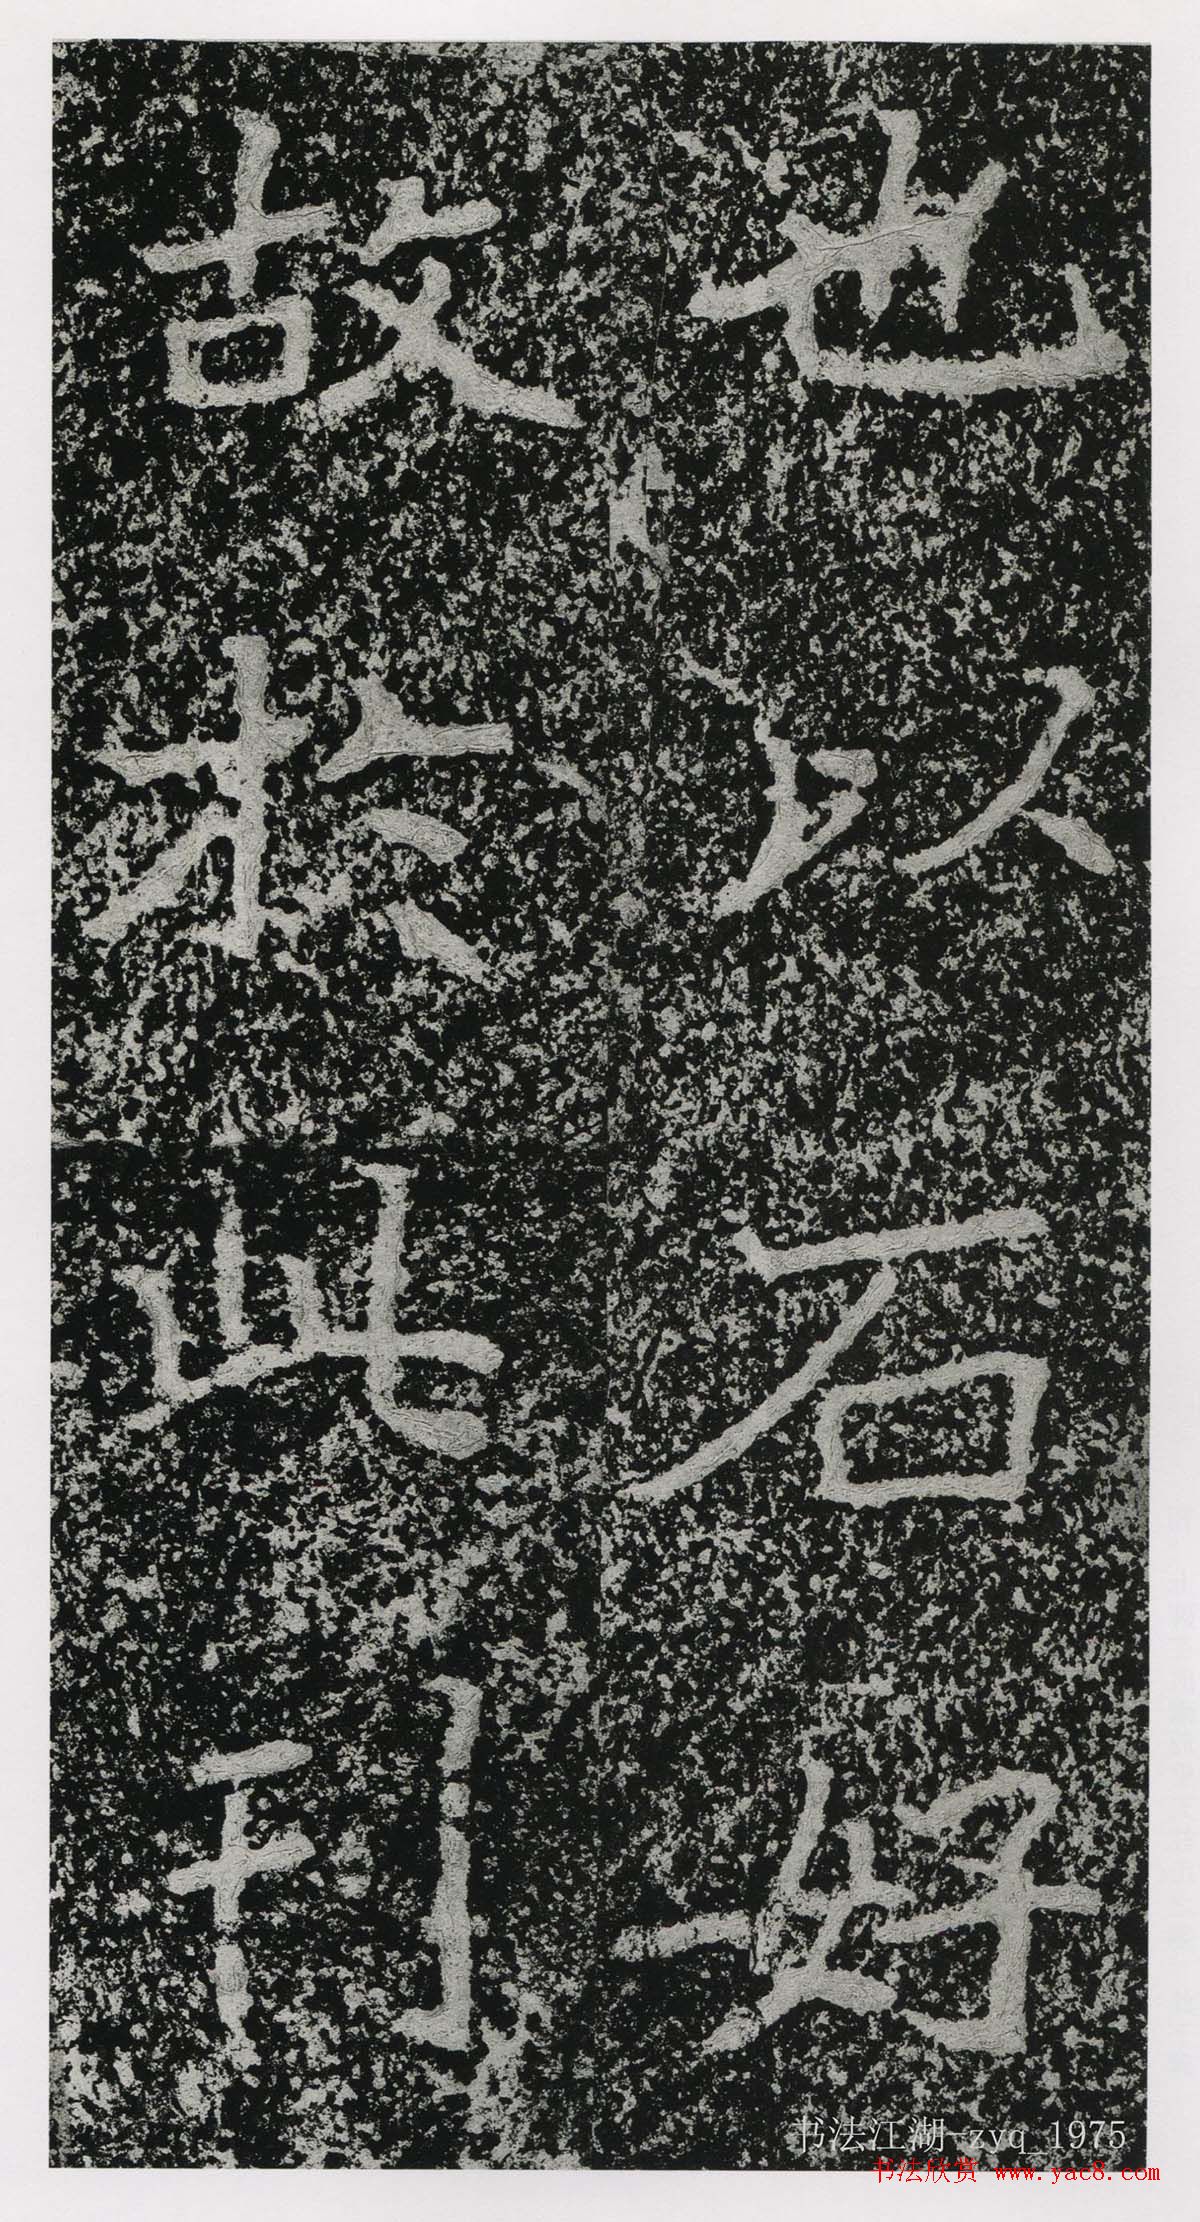 也以石好
故於此刊
书法江湖-zyq_1975
书法欣赏 www.yac8.com